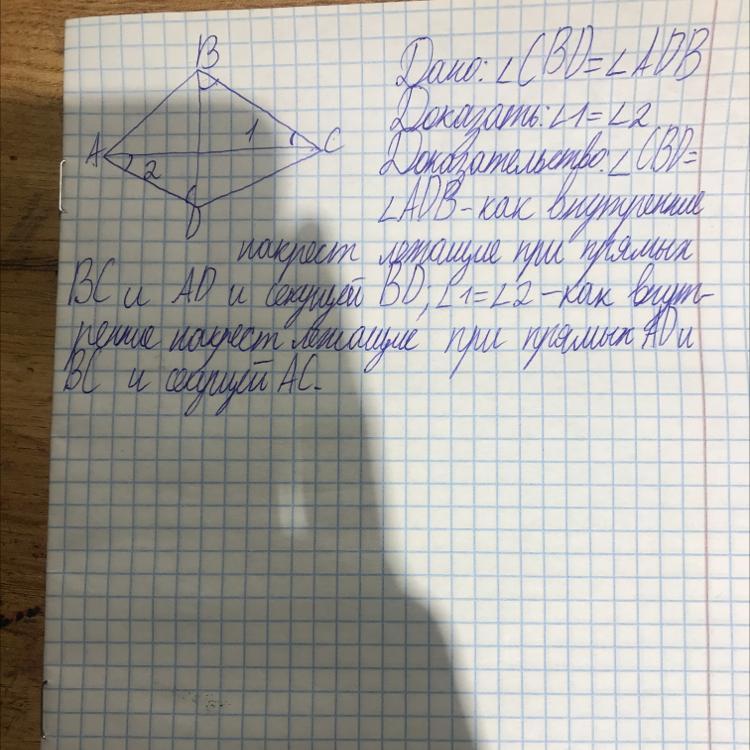 B
A
C
D
1
2
Дано: ∠CBD=∠ADB
Доказать: ∠1=∠2
Доказательство: ∠CBD=
∠ADB-как внутренние
накрест лежащие при прямых
BC и AD и секущей BD; ∠1=∠2 - как внут-
ренние накрест лежащие при прямых AD и
BC и секущей AC.